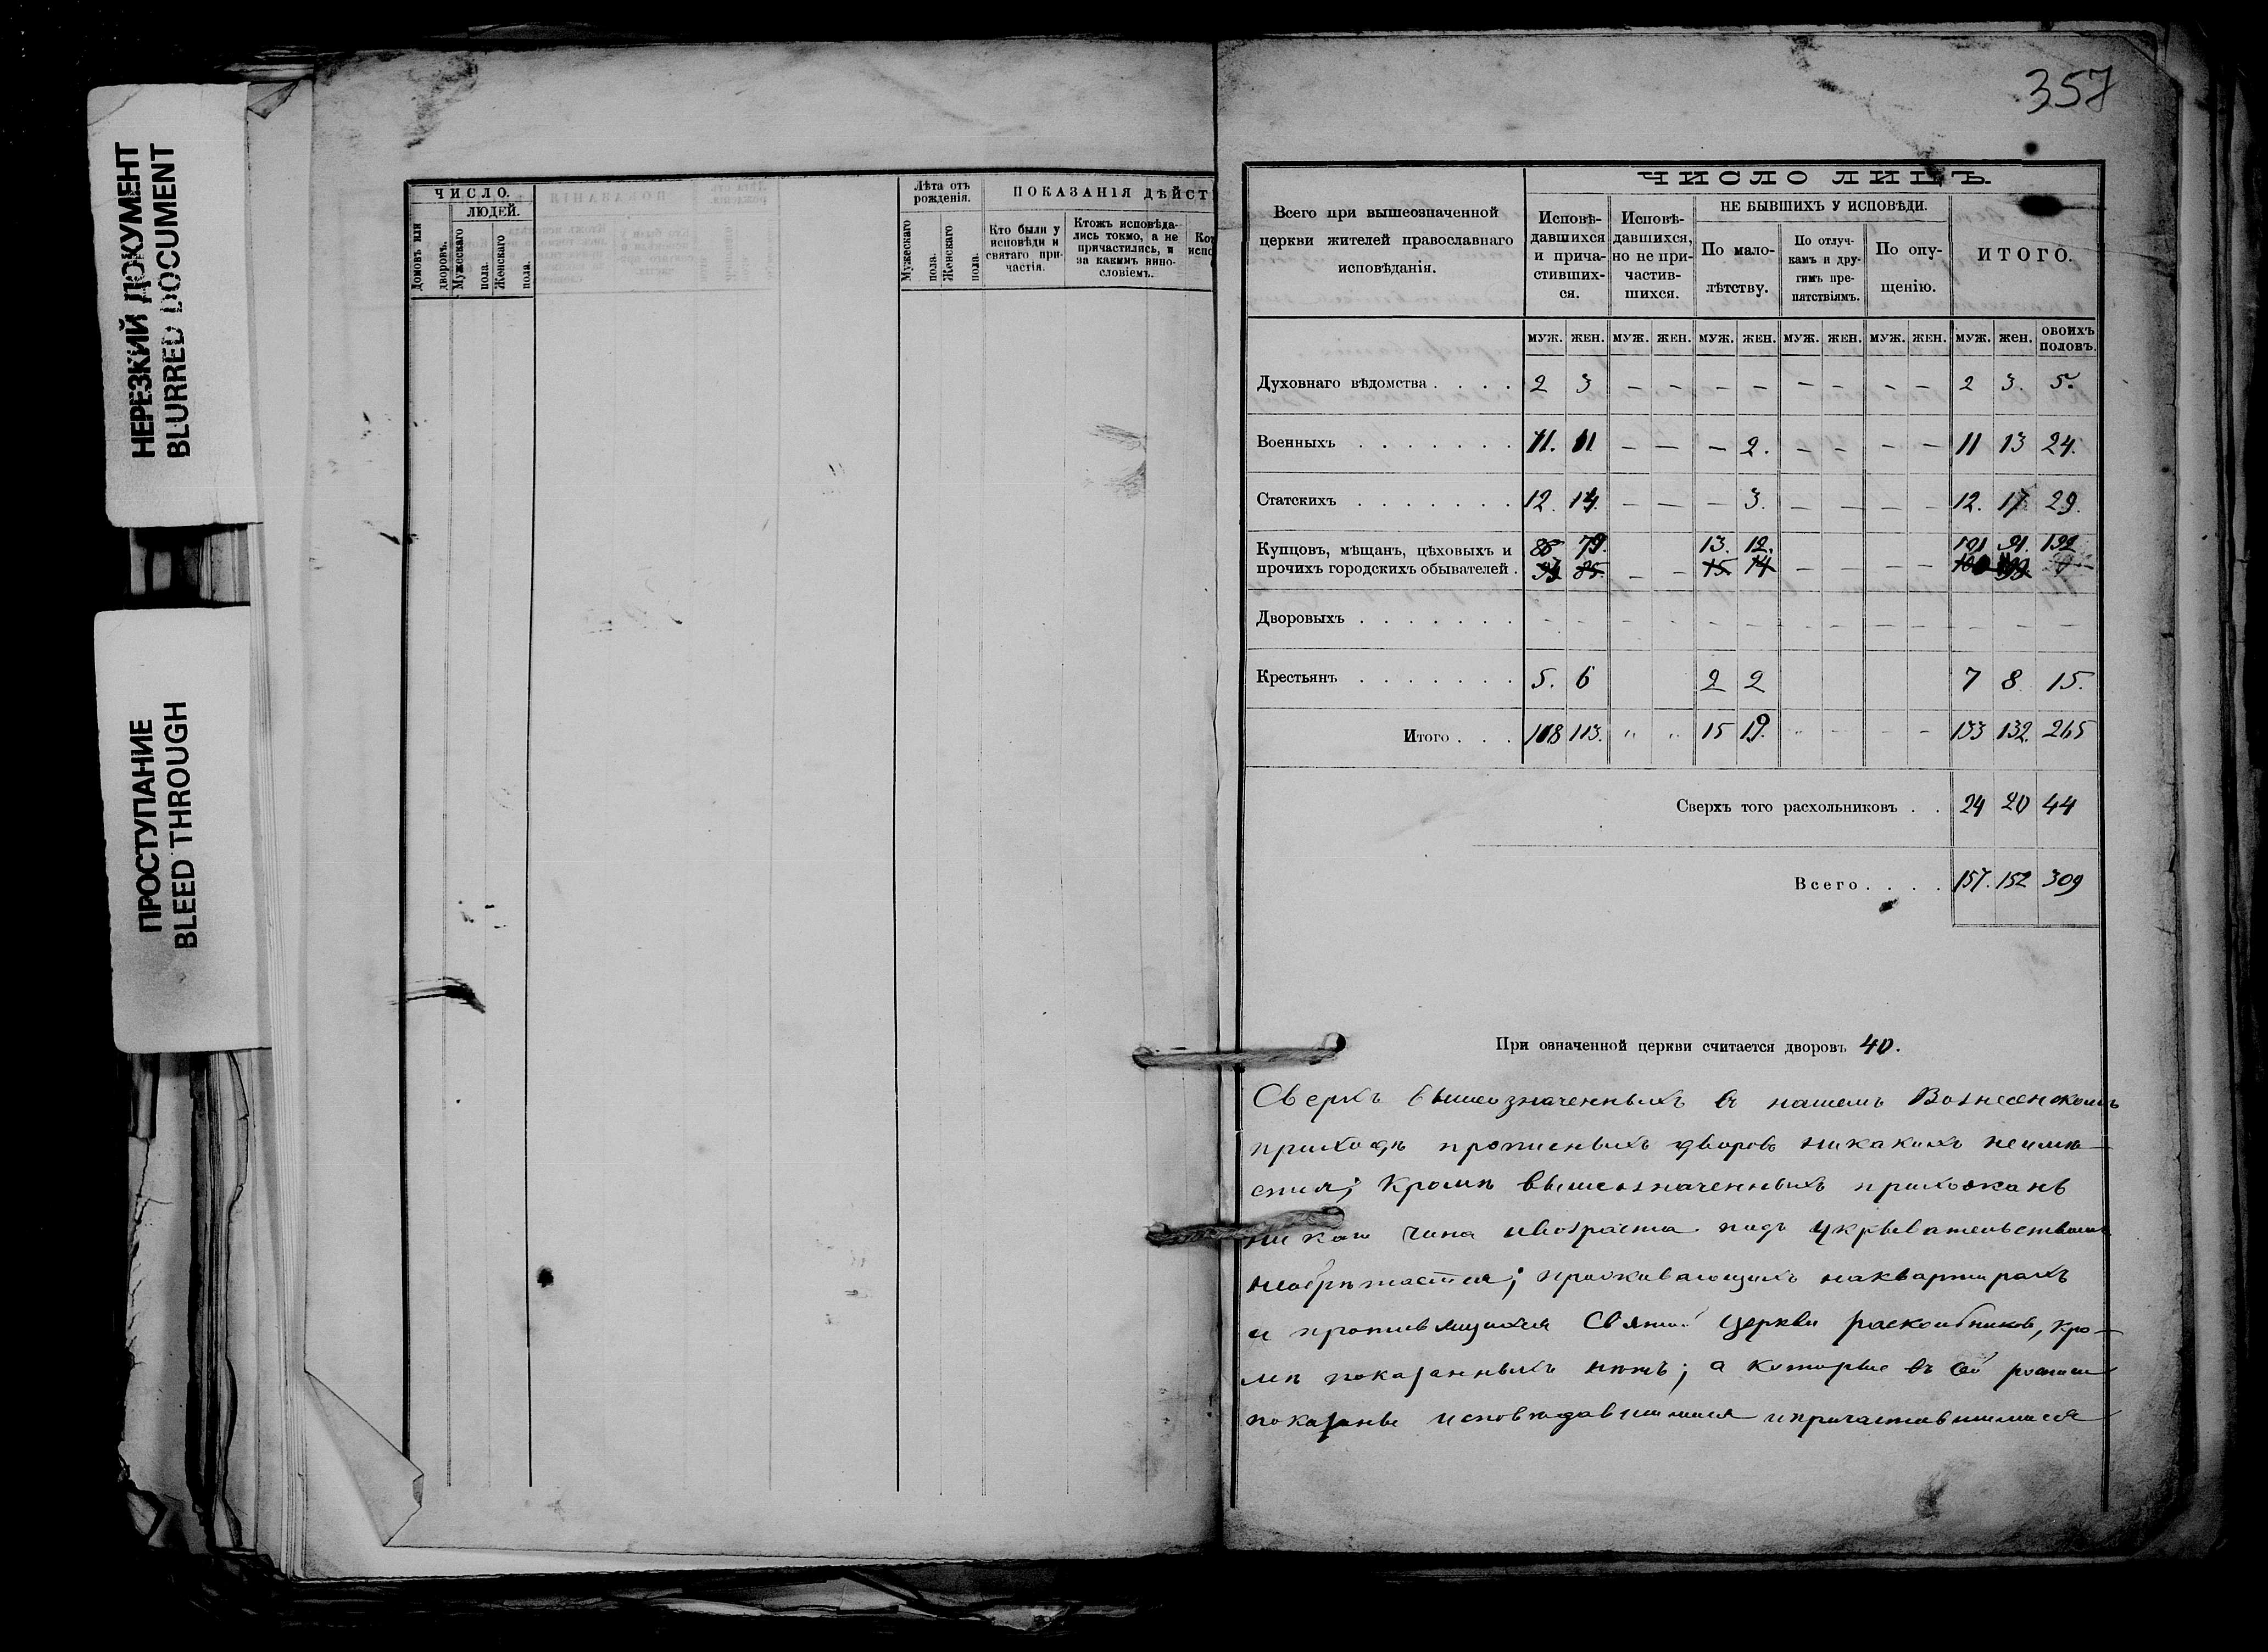 НЕРЕЗКИЙ ДОКУМЕНТ
BLURRED DOCUMENT
ПРОСТУПАНИЕ
BLEED THROUGH
ЧИСЛО.
ЛЮДЕЙ.
Домовъ или дворовъ.
Мужескаго пола.
Женскаго пола.
Лѣта отъ рожденія.
Мужескаго пола.
Женскаго пола.
ПОКАЗАНІЯ ДѢЙСТ
Кто были у исповѣди и святаго причастія.
Ктожъ исповѣдались токмо, а не причастились, и за какимъ винословіемъ.
357
Всего при вышеозначенной
церкви жителей православнаго
исповѣданія.
ЧИСЛО ЛИЦЪ.
Исповѣдавшихся и причастившихся.
Исповѣдавшихся, но не причастившихся.
НЕ БЫВШИХЪ У ИСПОВѢДИ.
По малолѣтству.
По отлучкамъ и другимъ препятствіямъ.
По опущенію.
ИТОГО.
МУЖ. ЖЕН. МУЖ. ЖЕН. МУЖ. ЖЕН. МУЖ. ЖЕН. МУЖ. ЖЕН. МУЖ. ЖЕН. ОБОИХЪ ПОЛОВЪ.
Духовнаго вѣдомства . . . . 2 3 – – – – – – – – 2 3. 5.
Военныхъ . . . . . . . 11. 11 – – – 2. – – – – 11 13 24.
Статскихъ . . . . . . . 12. 14. – – – 3. – – – – 12. 17. 29.
Купцовъ, мѣщанъ, цѣховыхъ и 88 79. 13. 12. 101 91. 192
прочихъ городскихъ обывателей . 85. – – 15 14 – – – –
Дворовыхъ . . . . . . . – – – – – – – – – – – – –
Крестьянъ . . . . . . . 5. 6 2 2 7 8. 15.
Итого . . . 118 113. „ „ 15 19. – – – – 133 132. 265
Сверхъ того расхольниковъ . . 24 20 44
Всего . . . . 157. 152 309
При означенной церкви считается дворовъ 40.
Сверхъ вышеозначенныхъ въ нашемъ Вознесенскомъ
приходѣ прописныхъ дворовъ никакихъ неимѣ-
ется; Кромѣ вышеозначенныхъ прихожанъ
никого чина ивозраста подъ укрывательствомъ
необрѣтается; проживающихъ наквартирахъ
и противящихся Святой Церкви раскольниковъ, кро-
мѣ показанныхъ нѣтъ; а которые въ сей росписи
показаны исповѣдавшимися ипричастившимися